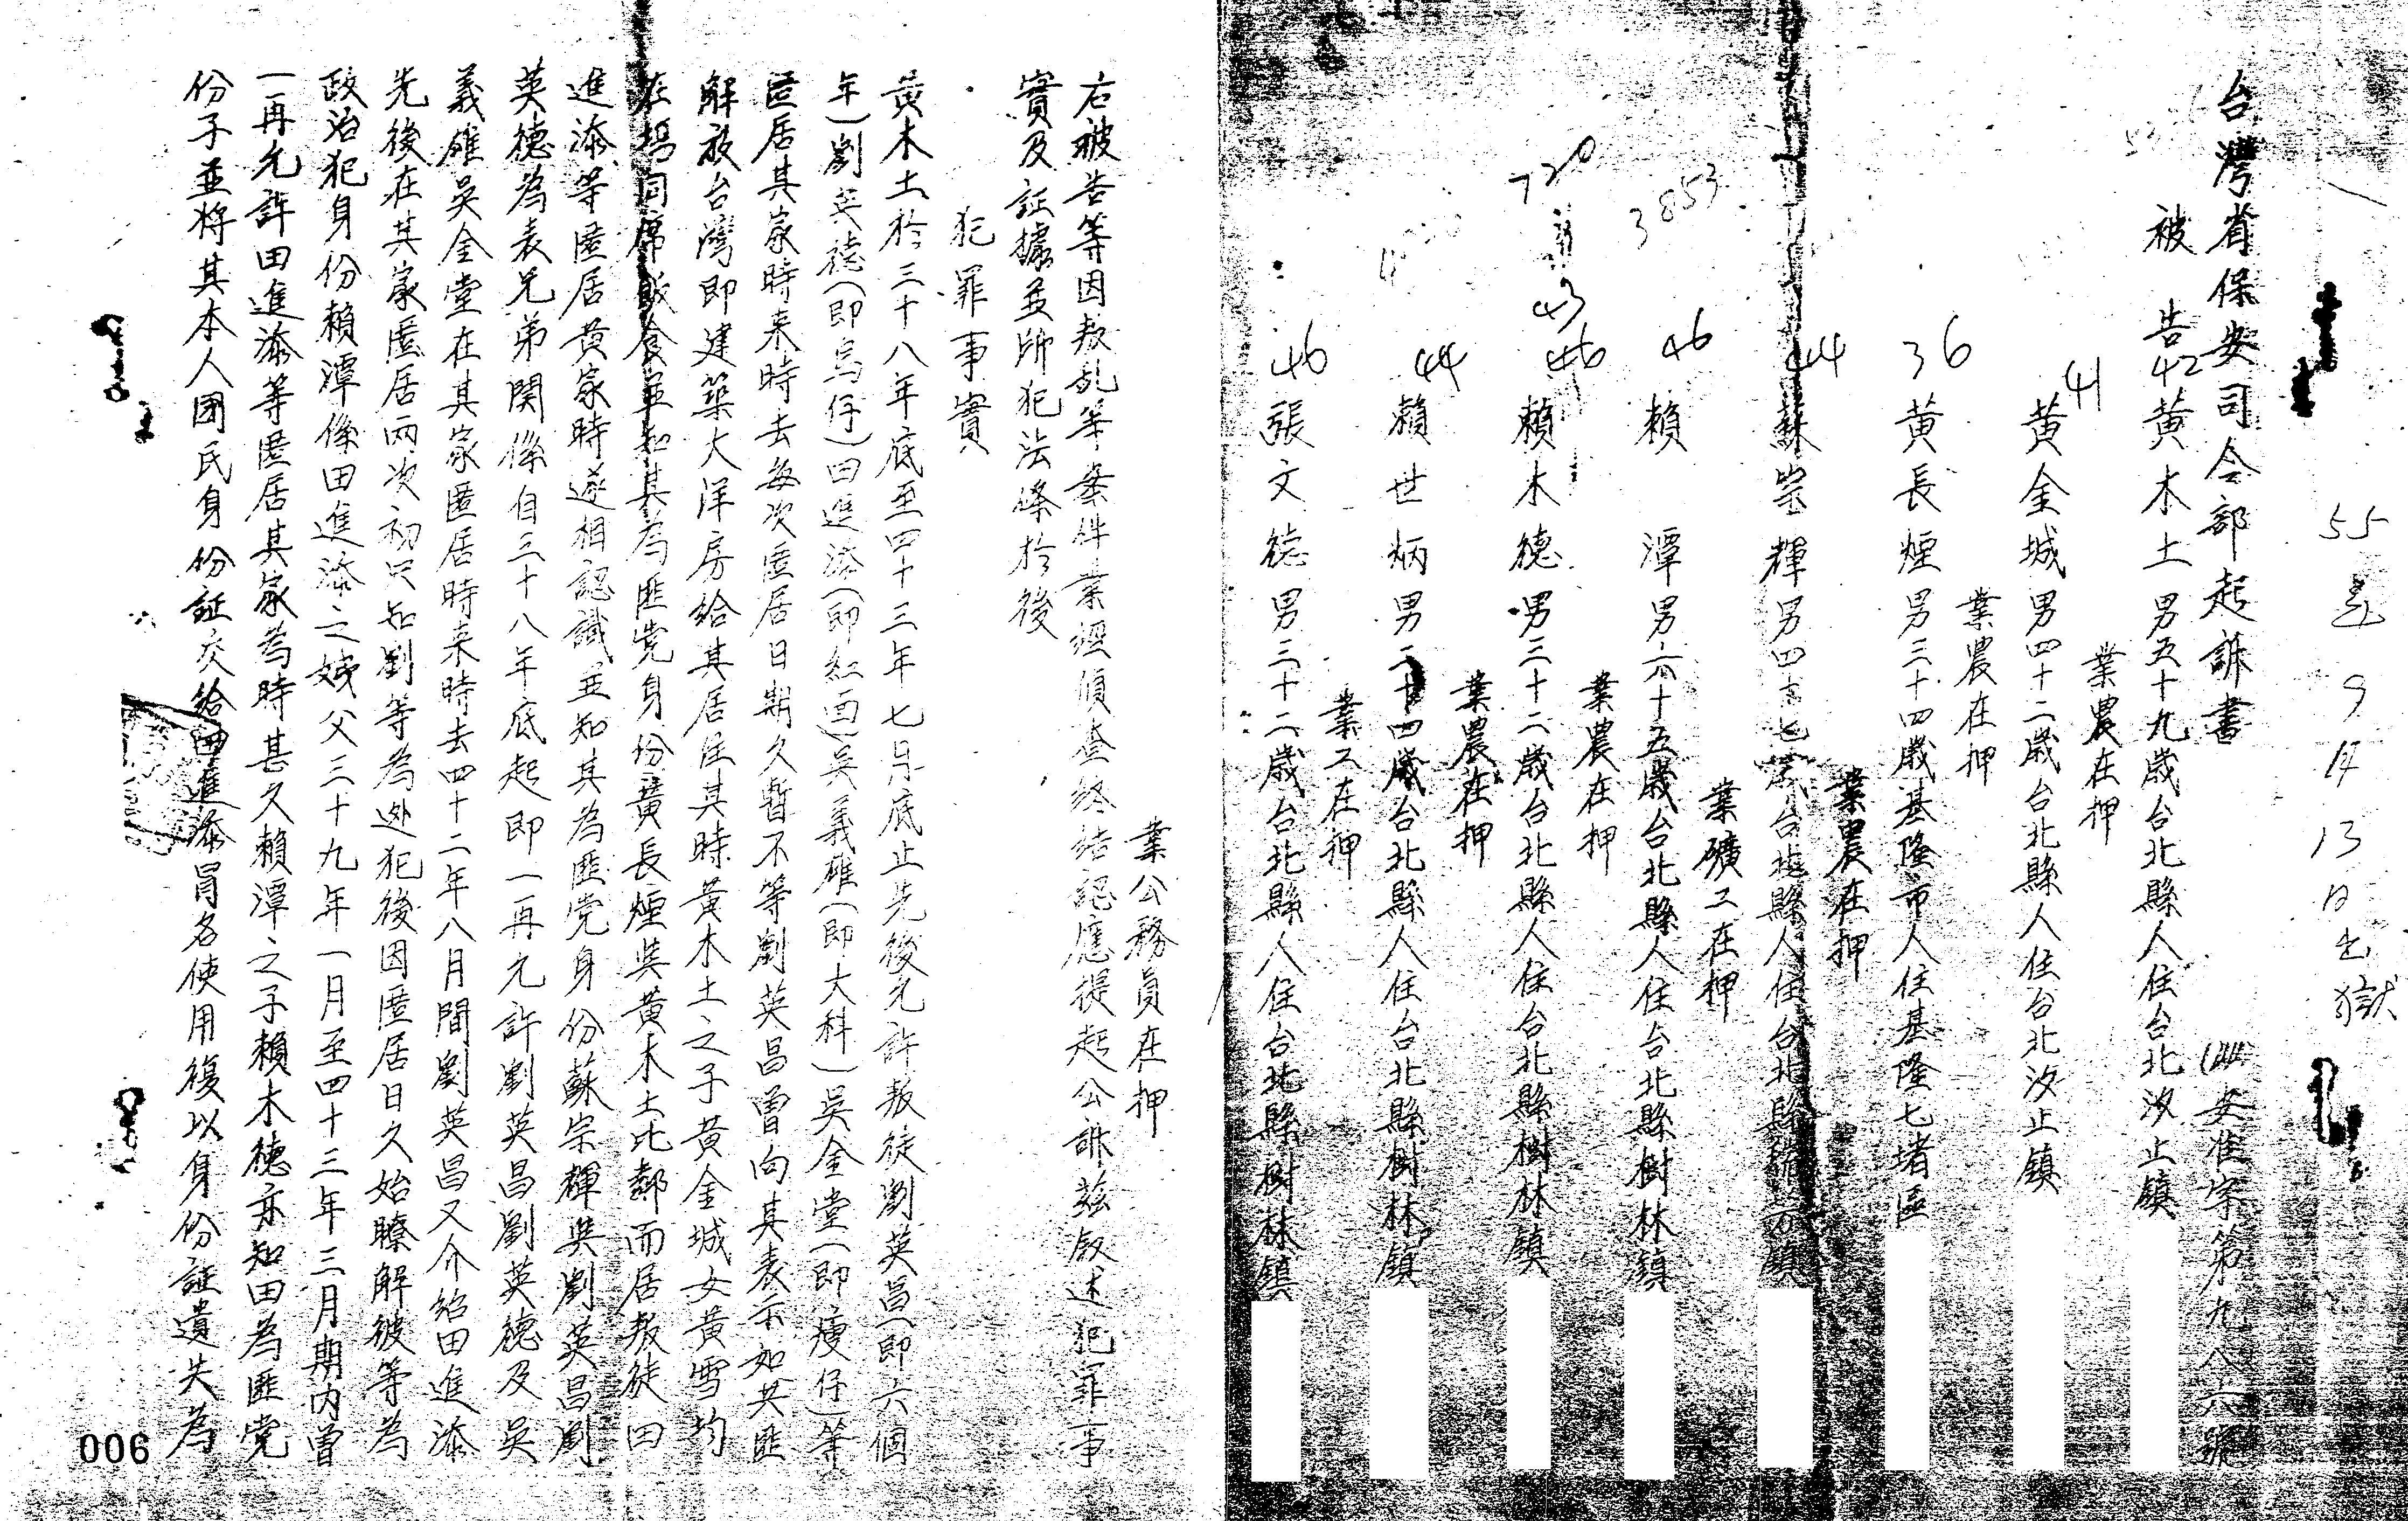 55 9月13日出獄
台灣省保安司令部起訴書
安准字第九八六號
被告
42
黃木土 男五十九歲台北縣人住台北汐止鎮
業農在押
41
黃金城 男四十二歲台北縣人住台北汐止鎮
業農在押
36
黃長煙 男三十四歲基隆市人住基隆七堵區
業農在押
44
蘇崇輝 男四十七歲台北縣人住台北縣鎮
業礦工在押
3853
46
賴潭 男六十五歲台北縣人住台北縣樹林鎮
業農在押
720
43
46
賴木德 男三十二歲台北縣人住台北縣樹林鎮
業農在押
44
賴世炳 男二十四歲台北縣人住台北縣樹林鎮
業工在押
46
張文德 男三十二歲台北縣人住台北縣樹林鎮
業公務員在押
右被告等因叛乱等案件業經偵查終結認應提起公訴茲敘述犯罪事
實及証據並所犯法條於後
犯罪事實
黃木土於三十八年底至四十三年七月底止先後允許叛徒劉英昌(即六個
年)劉英德(即烏仔)田進添(即紅面)吳義雄(即大科)吳金堂(即瘦仔)等
匿居其家時来時去每次匿居日期久暫不等劉英昌曾向其表示如共匪
解放台灣即建築大洋房給其居住其時黃木土之子黃金城女黃雪均
在場同席飲食並知其為匪党身份黃長煙與黃木土比鄰而居叛徒田
進添等匿居黃家時遂相認識並知其為匪党身份蘇崇輝與劉英昌劉
英德為表兄弟関係自三十八年底起即一再允許劉英昌劉英德及吳
義雄吳金堂在其家匿居時来時去四十二年八月間劉英昌又介紹田進添
先後在其家匿居兩次初只知劉等為逃犯後因匿居日久始瞭解彼等為
政治犯身份賴潭係田進添之姨父三十九年一月至四十三年三月期內曾
一再允許田進添等匿居其家為時甚久賴潭之子賴木德亦知田為匪党
份子並將其本人国民身份証交給田進添冒名使用復以身份証遺失為
006